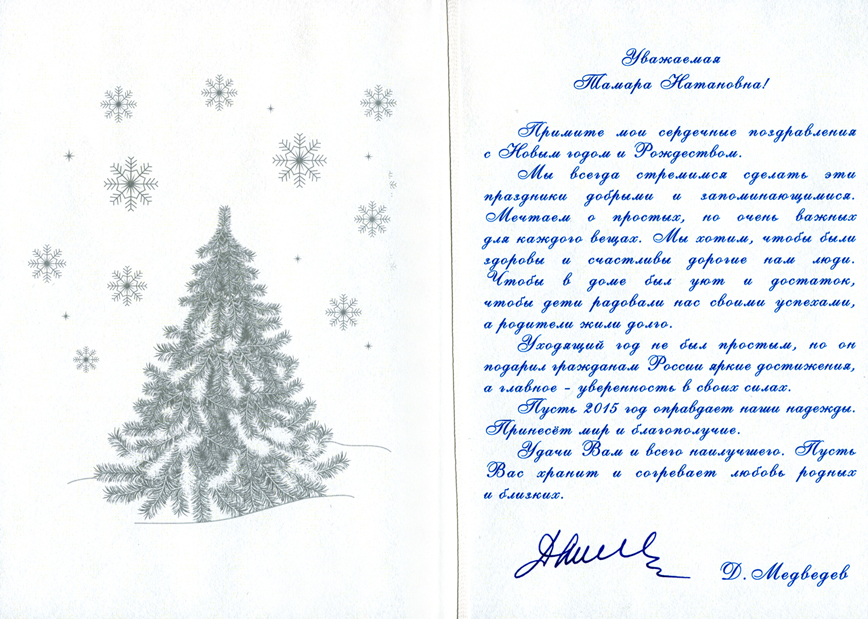 Уважаемая
Тамара Натановна!
Примите мои сердечные поздравления
с Новым годом и Рождеством.
Мы всегда стремимся сделать эти
праздники добрыми и запоминающимися.
Мечтаем о простых, но очень важных
для каждого вещах. Мы хотим, чтобы были
здоровы и счастливы дорогие нам люди.
Чтобы в доме был уют и достаток,
чтобы дети радовали нас своими успехами,
а родители жили долго.
Уходящий год не был простым, но он
подарил гражданам России яркие достижения,
а главное - уверенность в своих силах.
Пусть 2015 год оправдает наши надежды.
Принесёт мир и благополучие.
Удачи Вам и всего наилучшего. Пусть
Вас хранит и согревает любовь родных
и близких.
Д. Медведев